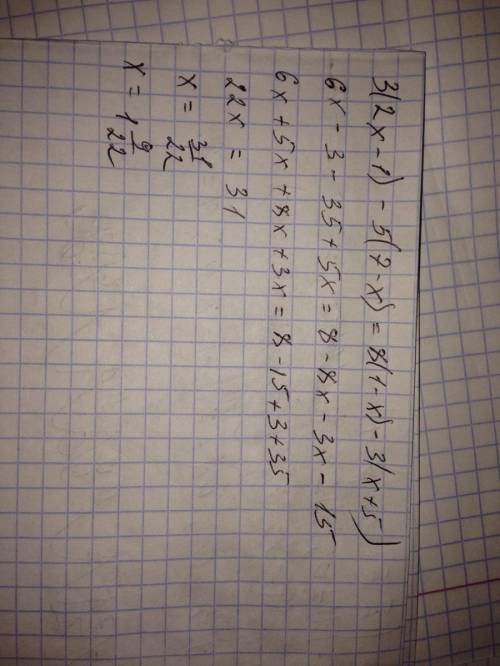 3(2x - 1) - 5(7 - x) = 8(1 - x) - 3(x + 5)
6x - 3 - 35 + 5x = 8 - 8x - 3x - 15
6x + 5x + 8x + 3x = 8 - 15 + 3 + 35
22x = 31
x = 31/22
x = 1 9/22